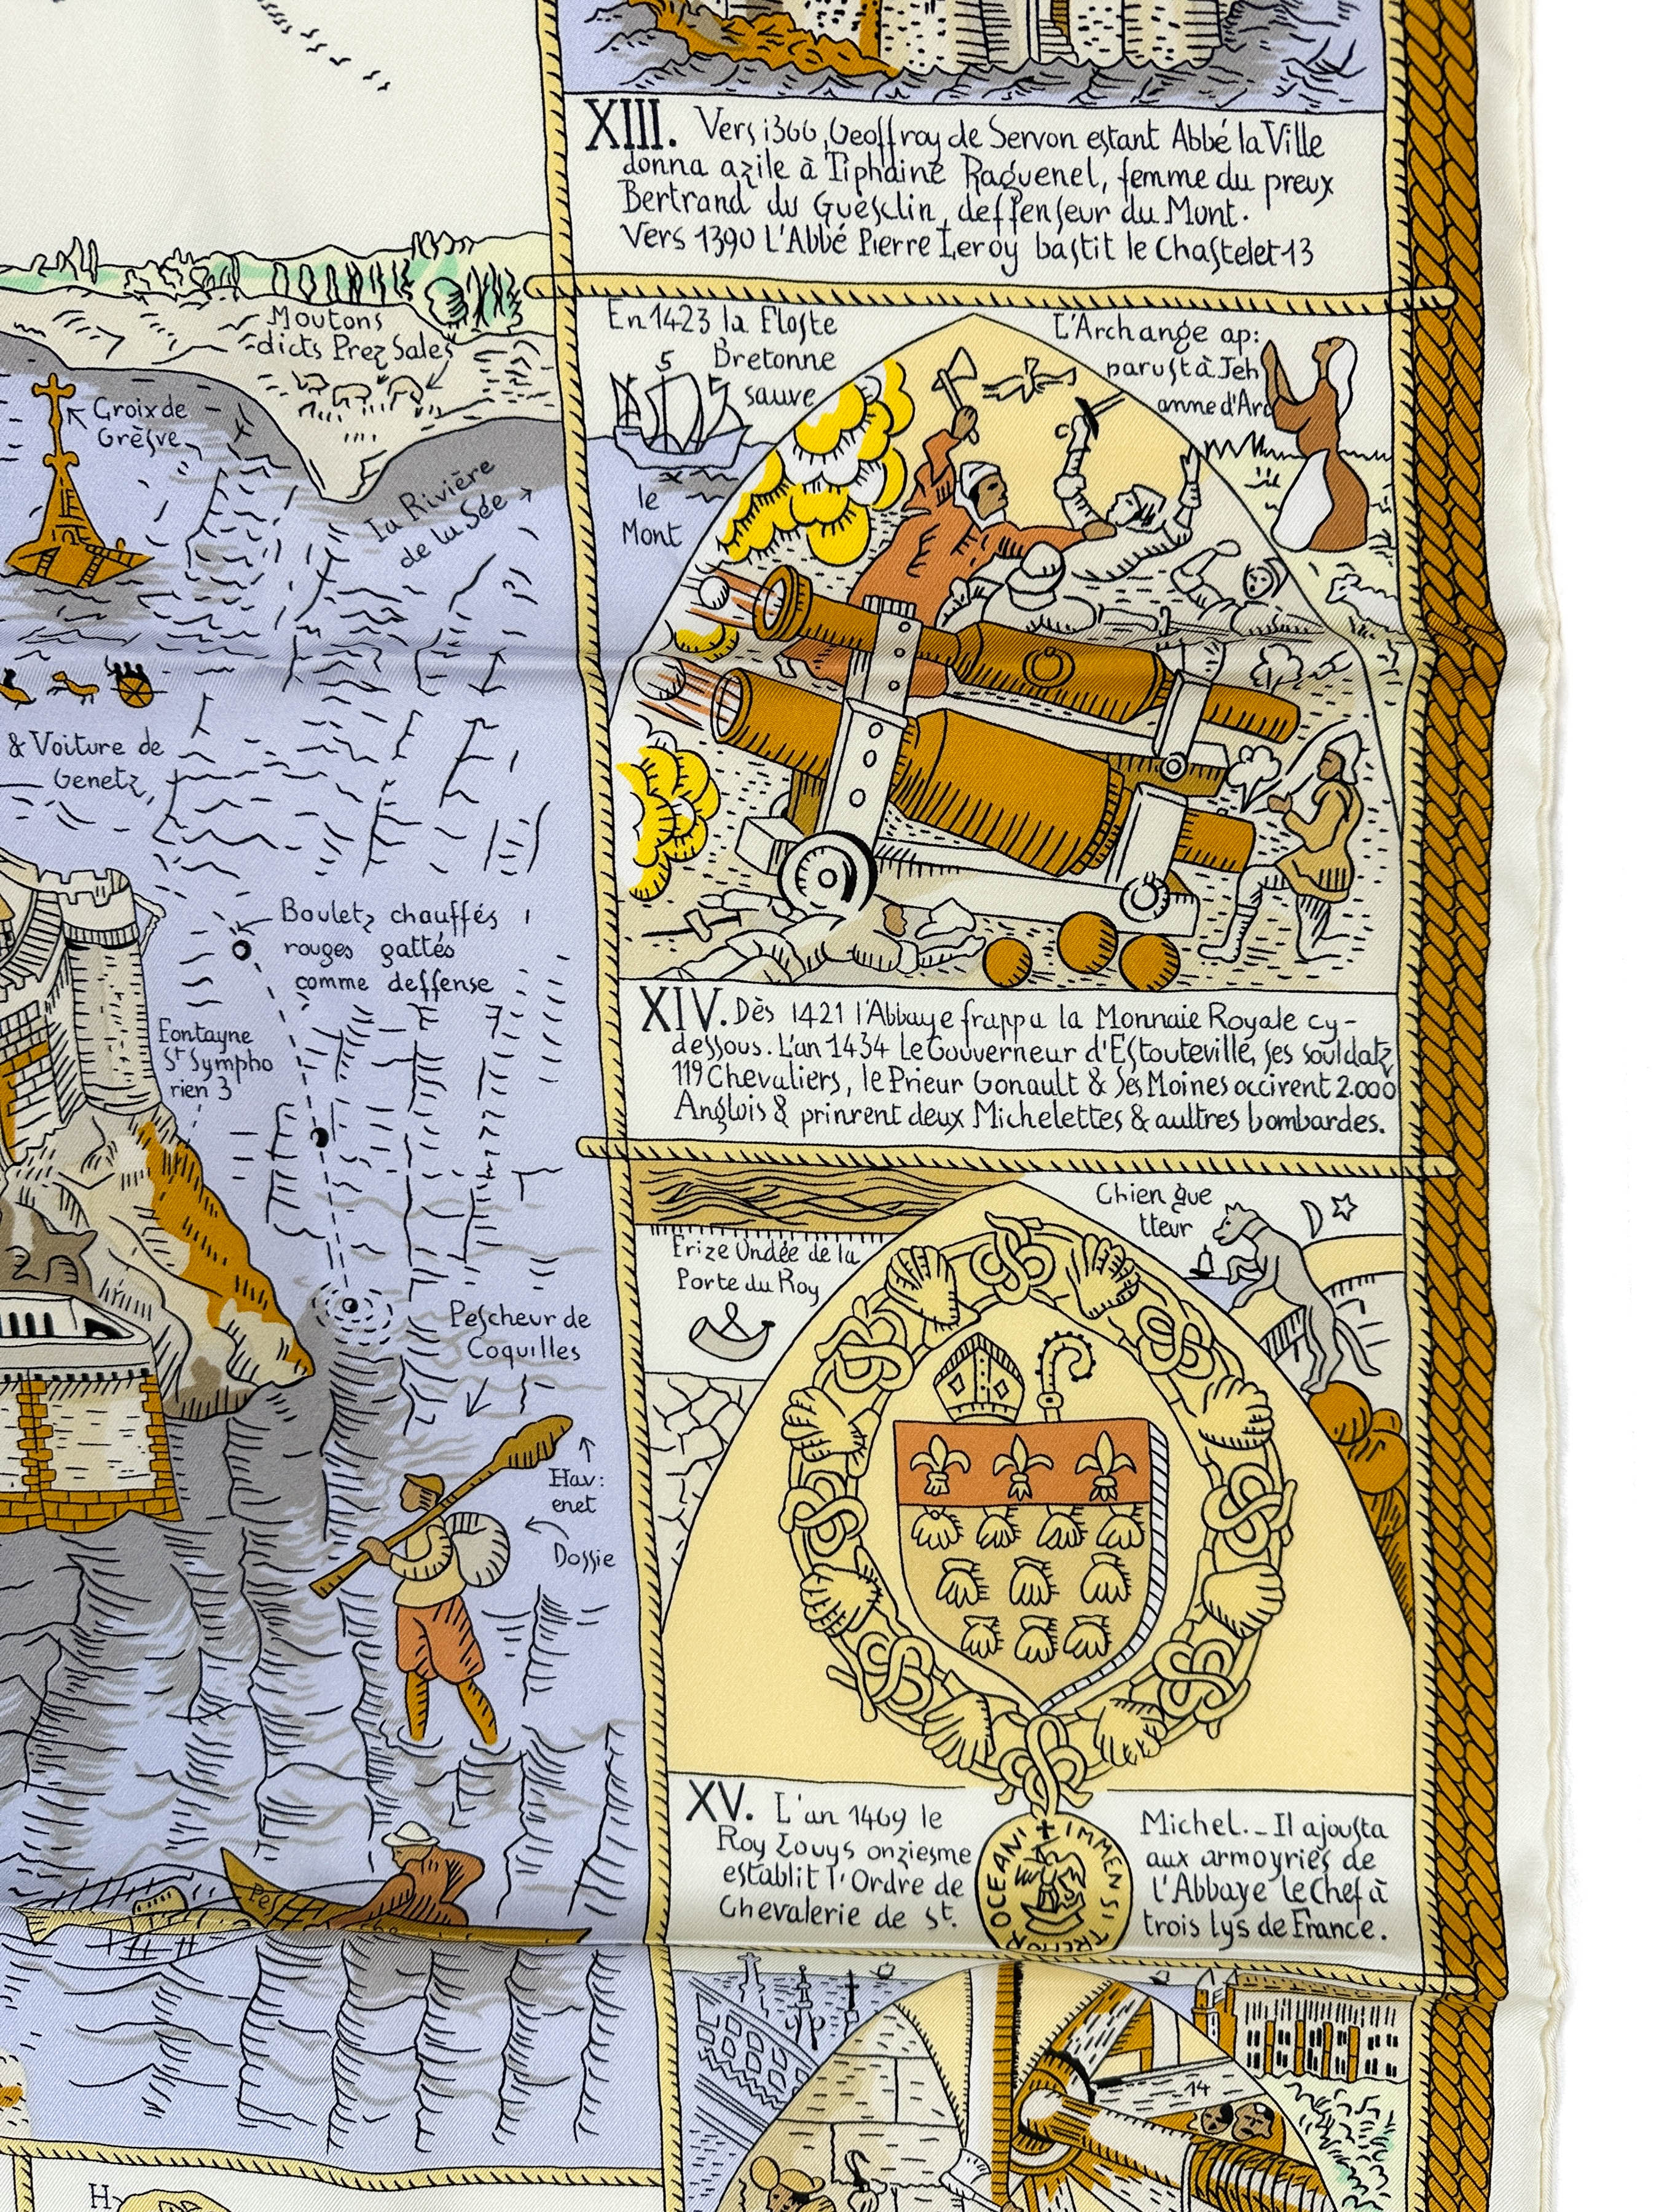 XIII. Vers 1366, Geoffroy de Servon estant Abbé la Ville
donna azile à Tiphaine Raguenel, femme du preux
Bertrand du Guesclin, deffenseur du Mont.
Vers 1390 L'Abbé Pierre Leroy bastit le Chastelet 13
Moutons
dicts Prez Sales
Croix de
Grèsve
la Rivière
de la Sée
& Voiture de
Genetz
Bouletz chauffés
rouges gattés
comme deffense
Fontayne
St Sympho
rien 3
Pescheur de
Coquilles
Hav:
enet
Dossie
Pes
En 1423 la Floste
Bretonne
sauve
le
Mont
L'Archange ap:
parust à Jeh
anne d'Arc
XIV. Dès 1421 l'Abbaye frappa la Monnaie Royale cy-
dessous. L'an 1434 Le Gouverneur d'Estouteville, ses souldatz
119 Chevaliers, le Prieur Gonault & Ses Moines occirent 2.000
Anglois & prinrent deux Michelettes & aultres bombardes.
Frize Undée de la
Porte du Roy
Chien gue
tteur
XV. L'an 1469 le
Roy Louys onziesme
establit l'Ordre de
Chevalerie de St.
IMMENSI TREMOR OCEANI
Michel. _ Il ajousta
aux armoyries de
l'Abbaye le Chef à
trois lys de France.
14